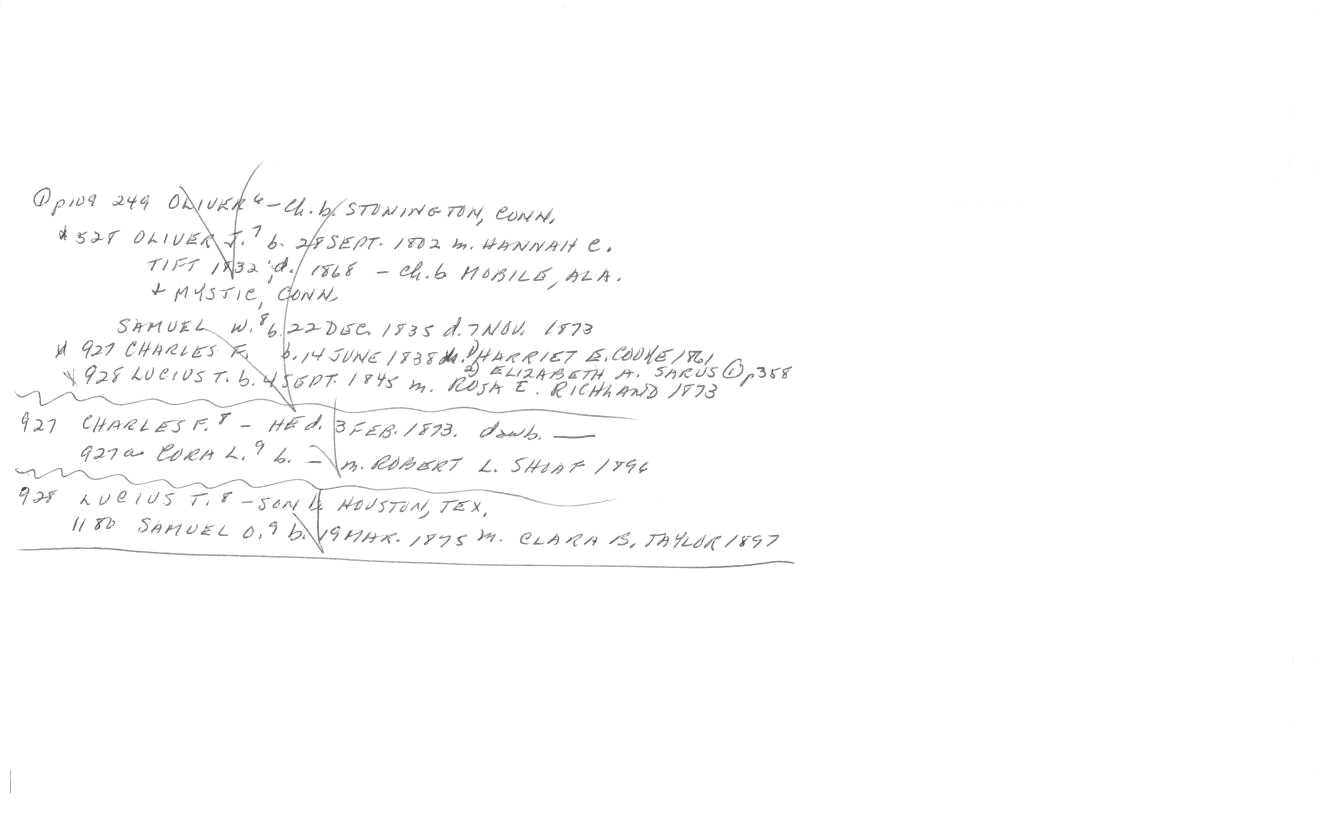 ① p109 249 OLIVER⁶ – Ch. b. STONINGTON, CONN.
* 528 OLIVER J.⁷ b. 28 SEPT. 1802 m. HANNAH C.
TIFT 1832; d. 1868 – Ch. b MOBILE, ALA.
+ MYSTIC, CONN.
SAMUEL W.⁸ b. 22 DEC. 1835 d. 7 NOV. 1873
* 927 CHARLES F. b. 14 JUNE 1838 m. 1) HARRIET E. COOKE 1861
2) ELIZABETH A. SARUS ① p358
* 928 LUCIUS T. b. 4 SEPT. 1845 m. ROSA E. RICHLAND 1873
927 CHARLES F.⁸ – HE d. 3 FEB. 1873. dau b. —
927a CORA L.⁹ b. — m. ROBERT L. SHOAF 1896
928 LUCIUS T.⁸ – SON b. HOUSTON, TEX.
1180 SAMUEL O.⁹ b. 19 MAR. 1875 m. CLARA B. TAYLOR 1897